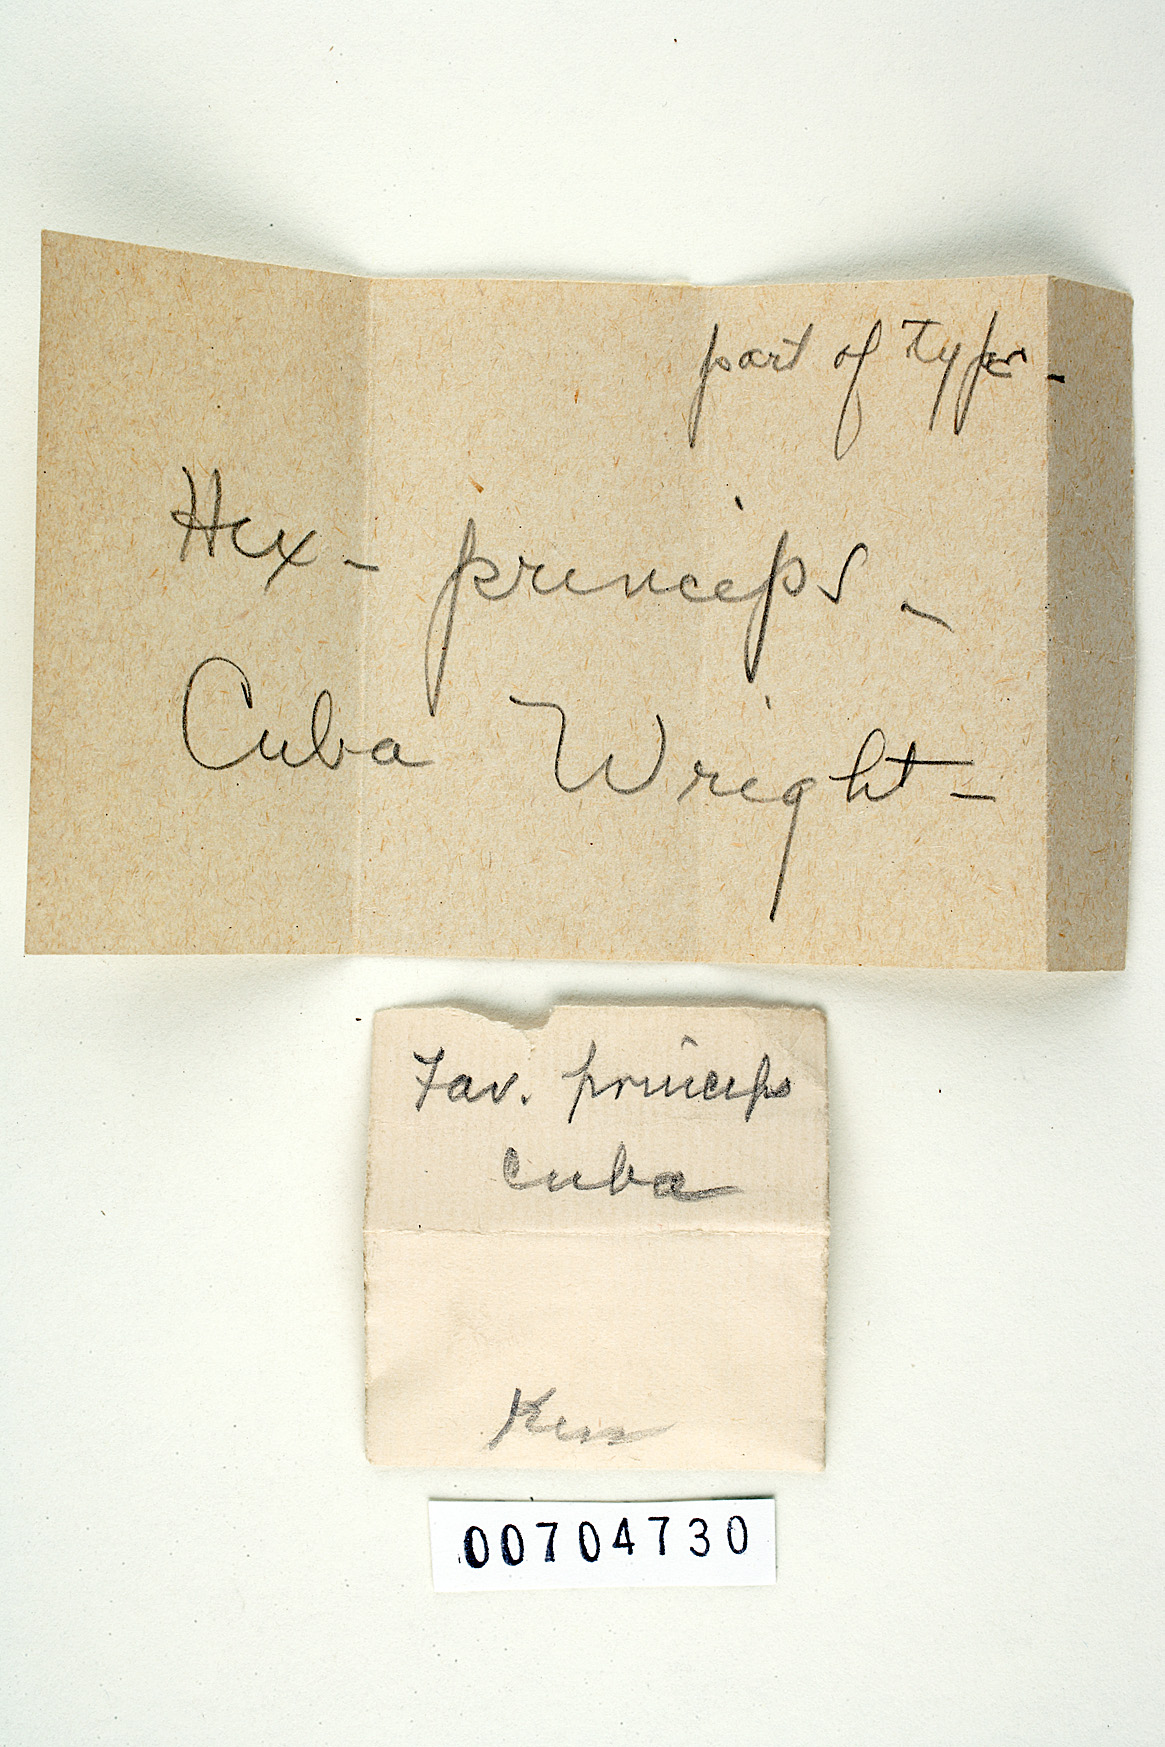 part of type -
Hex - princeps -
Cuba Wright -
Fav. princeps
Cuba
Kew
00704730